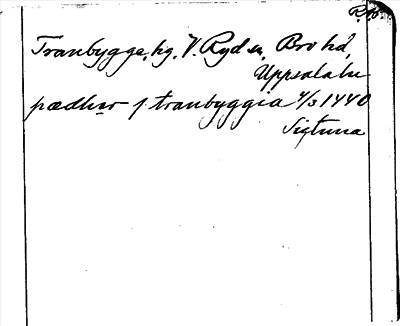 Tranbygge, hg. V. Ryd sn, Bro hd,
Uppsala län
pædhær j tranbyggia 4/3 1440
Sigtuna